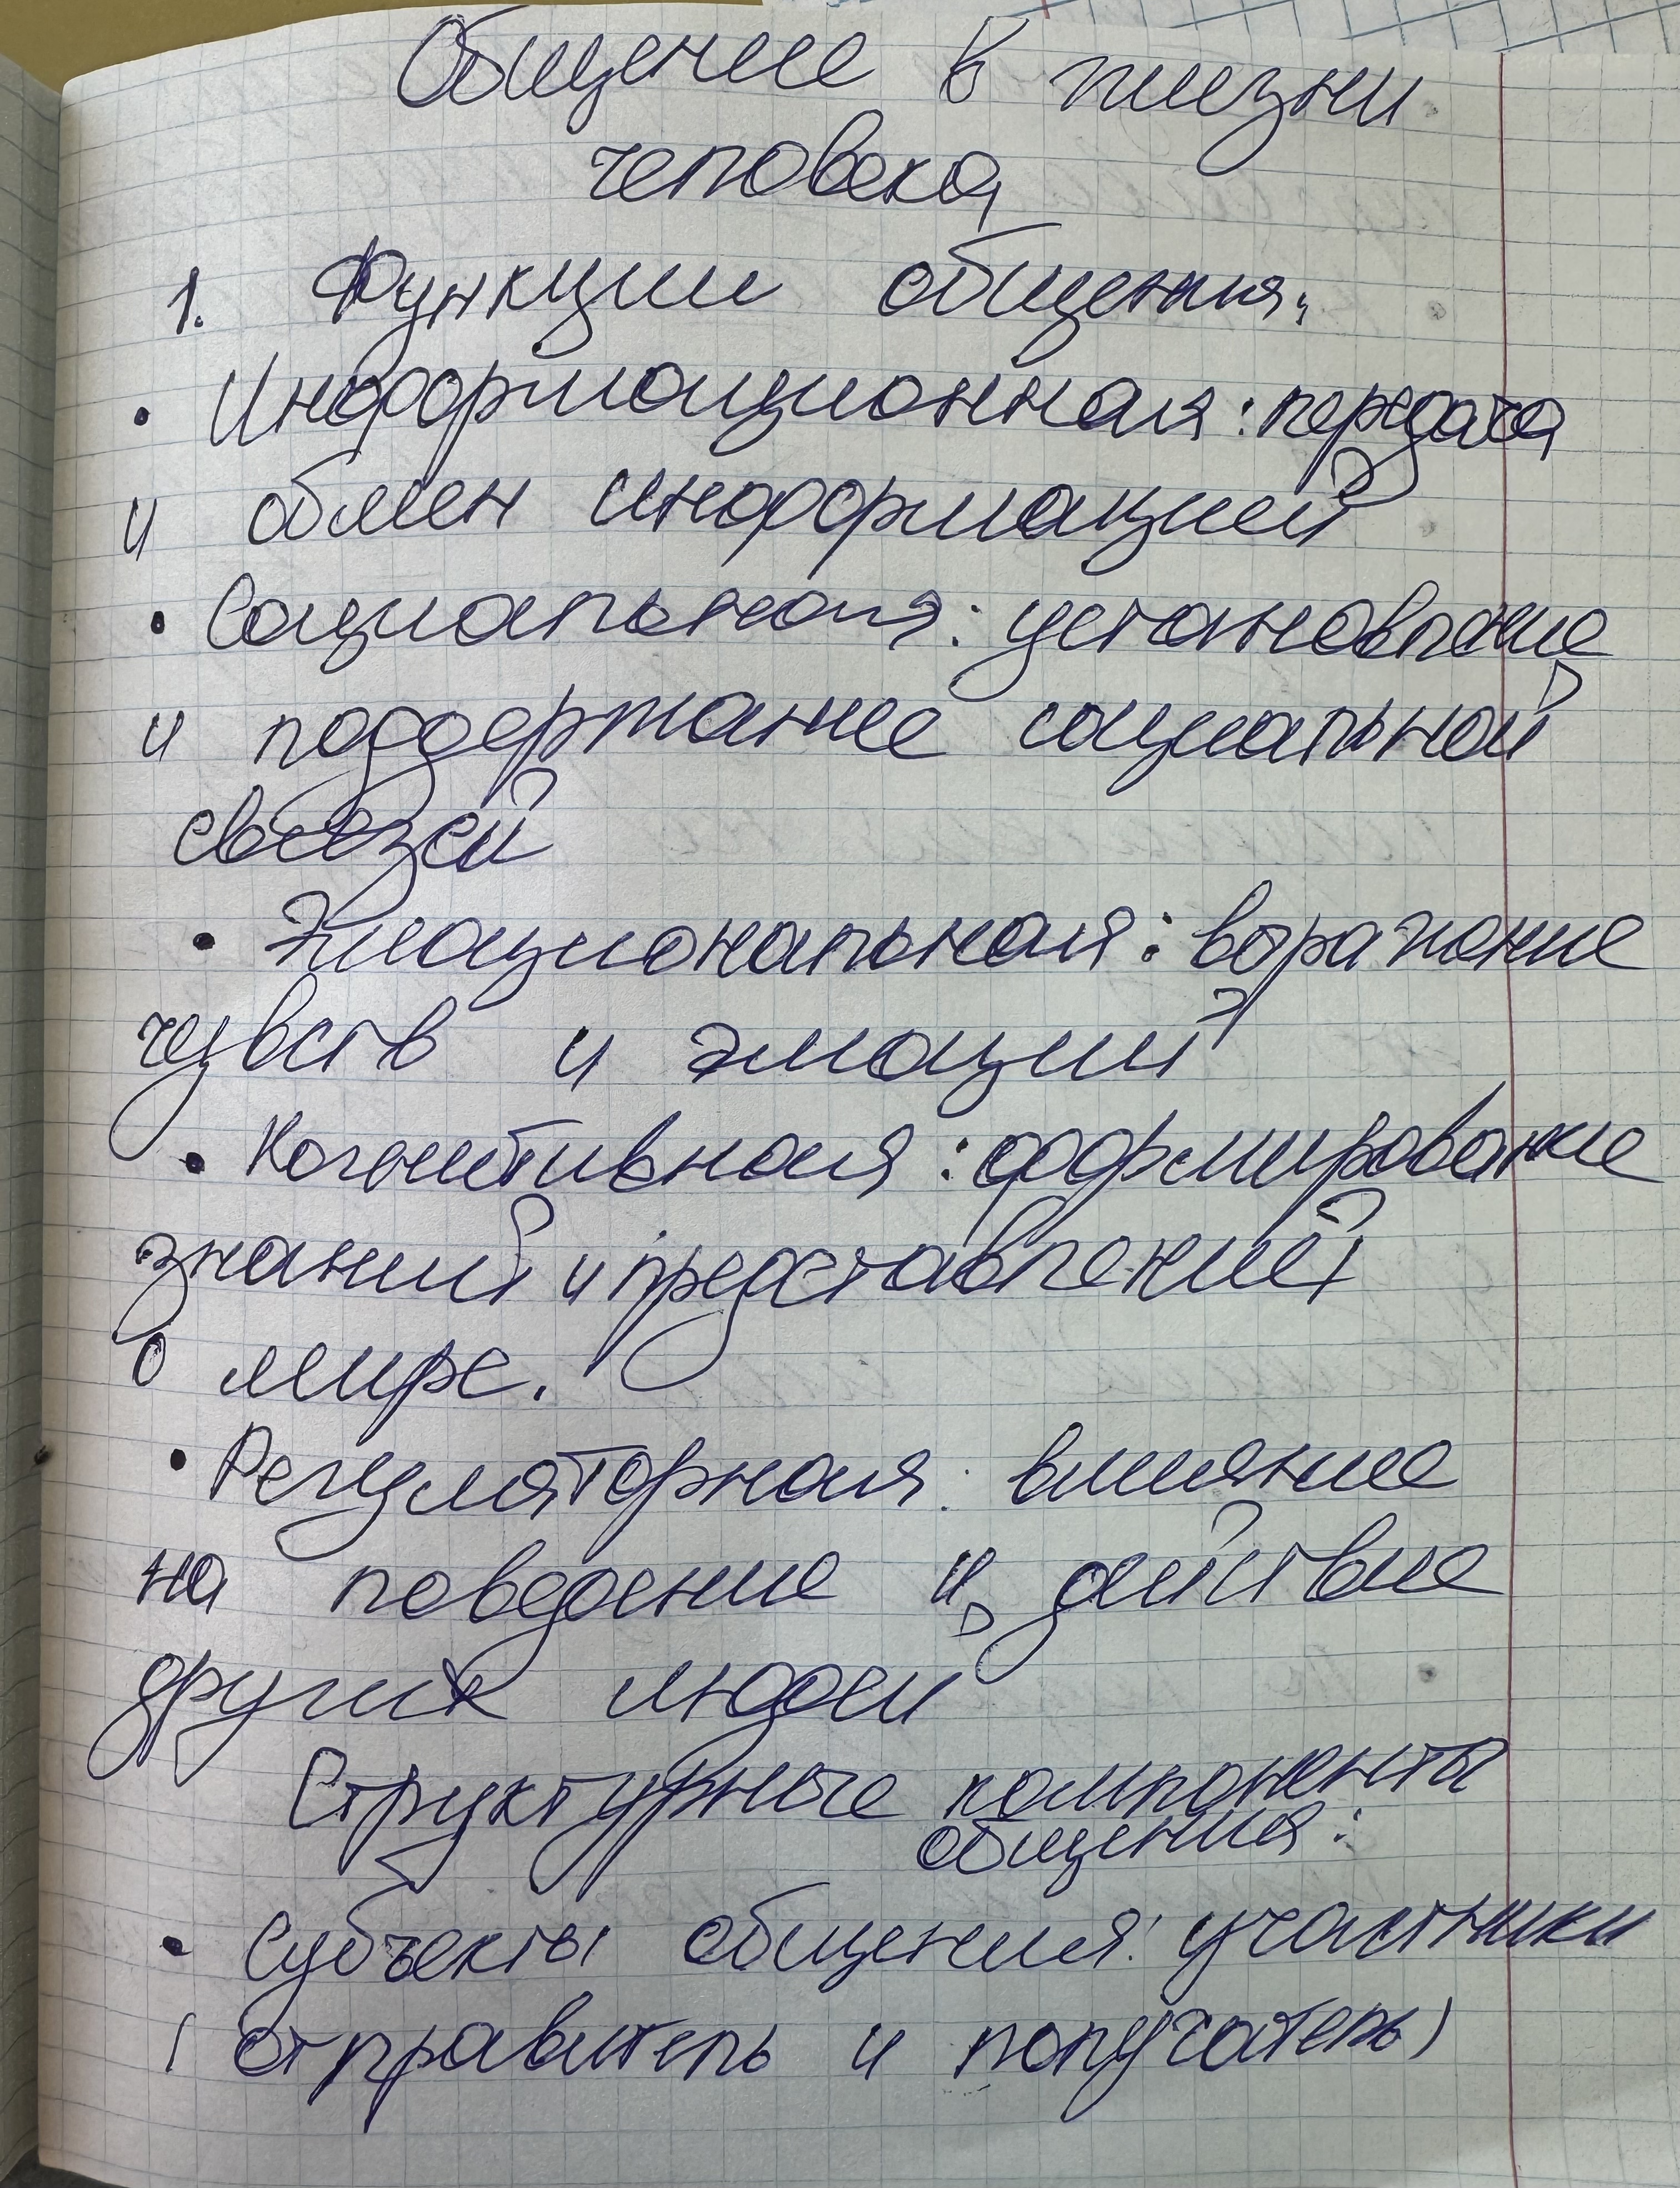 Общение в жизни
человека
1. Функции общения:
• Информационная: передача
и обмен информацией
• Социальная: установление
и поддержание социальной
связей
• Эмоциональная: выражение
чувств и эмоций
• Когнитивная: формирование
знаний и представлений
о мире.
• Регуляторная: влияние
на поведение и действие
других людей
Структурные компоненты
общения:
• Субъекты общения: участники
(отправитель и получатель)